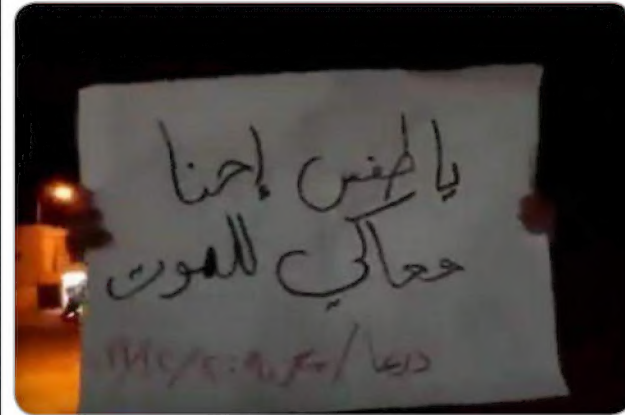 يا طفس إحنا
معاكي للموت
درعا /